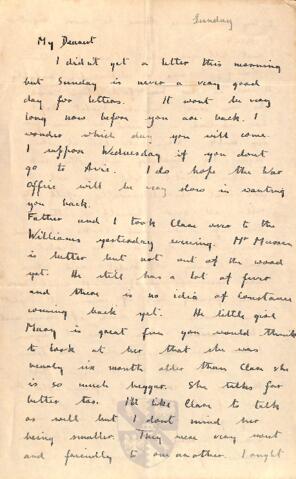 Sunday
My Dearest
I didn't get a letter this morning
but Sunday is never a very good
day for letters. It wont be very
long now before you are back. I
wonder which day you will come.
I suppose Wednesday if you dont
go to I do hope the War
Office will be very slow in wanting
you back.
Father and I took Clare over to the
Williams yesterday evening. Mr
is better but not out of the wood
yet. He still has a lot of fever
and there is no idea of Constance
coming back yet. The little girl
Mary is great fun you would think
to look at her that she was
nearly six months older than Clare she
is so much bigger. She talks far
better too. I'd like Clare to talk
as well but I dont mind her
being smaller. They were very sweet
and friendly to one another. I ought